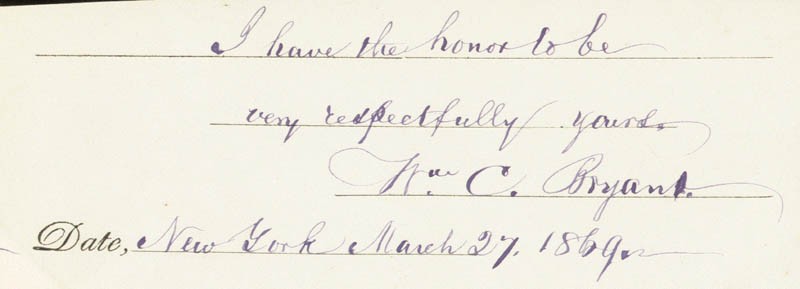 I have the honor to be
very respectfully yours.
Wm. C. Bryant.
Date, New York March 27. 1869.